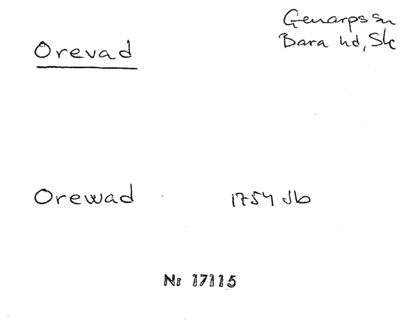 Orevad
Genarps sn
Bara hd, Sk
Orewad 1754 Jb
Nr 17115